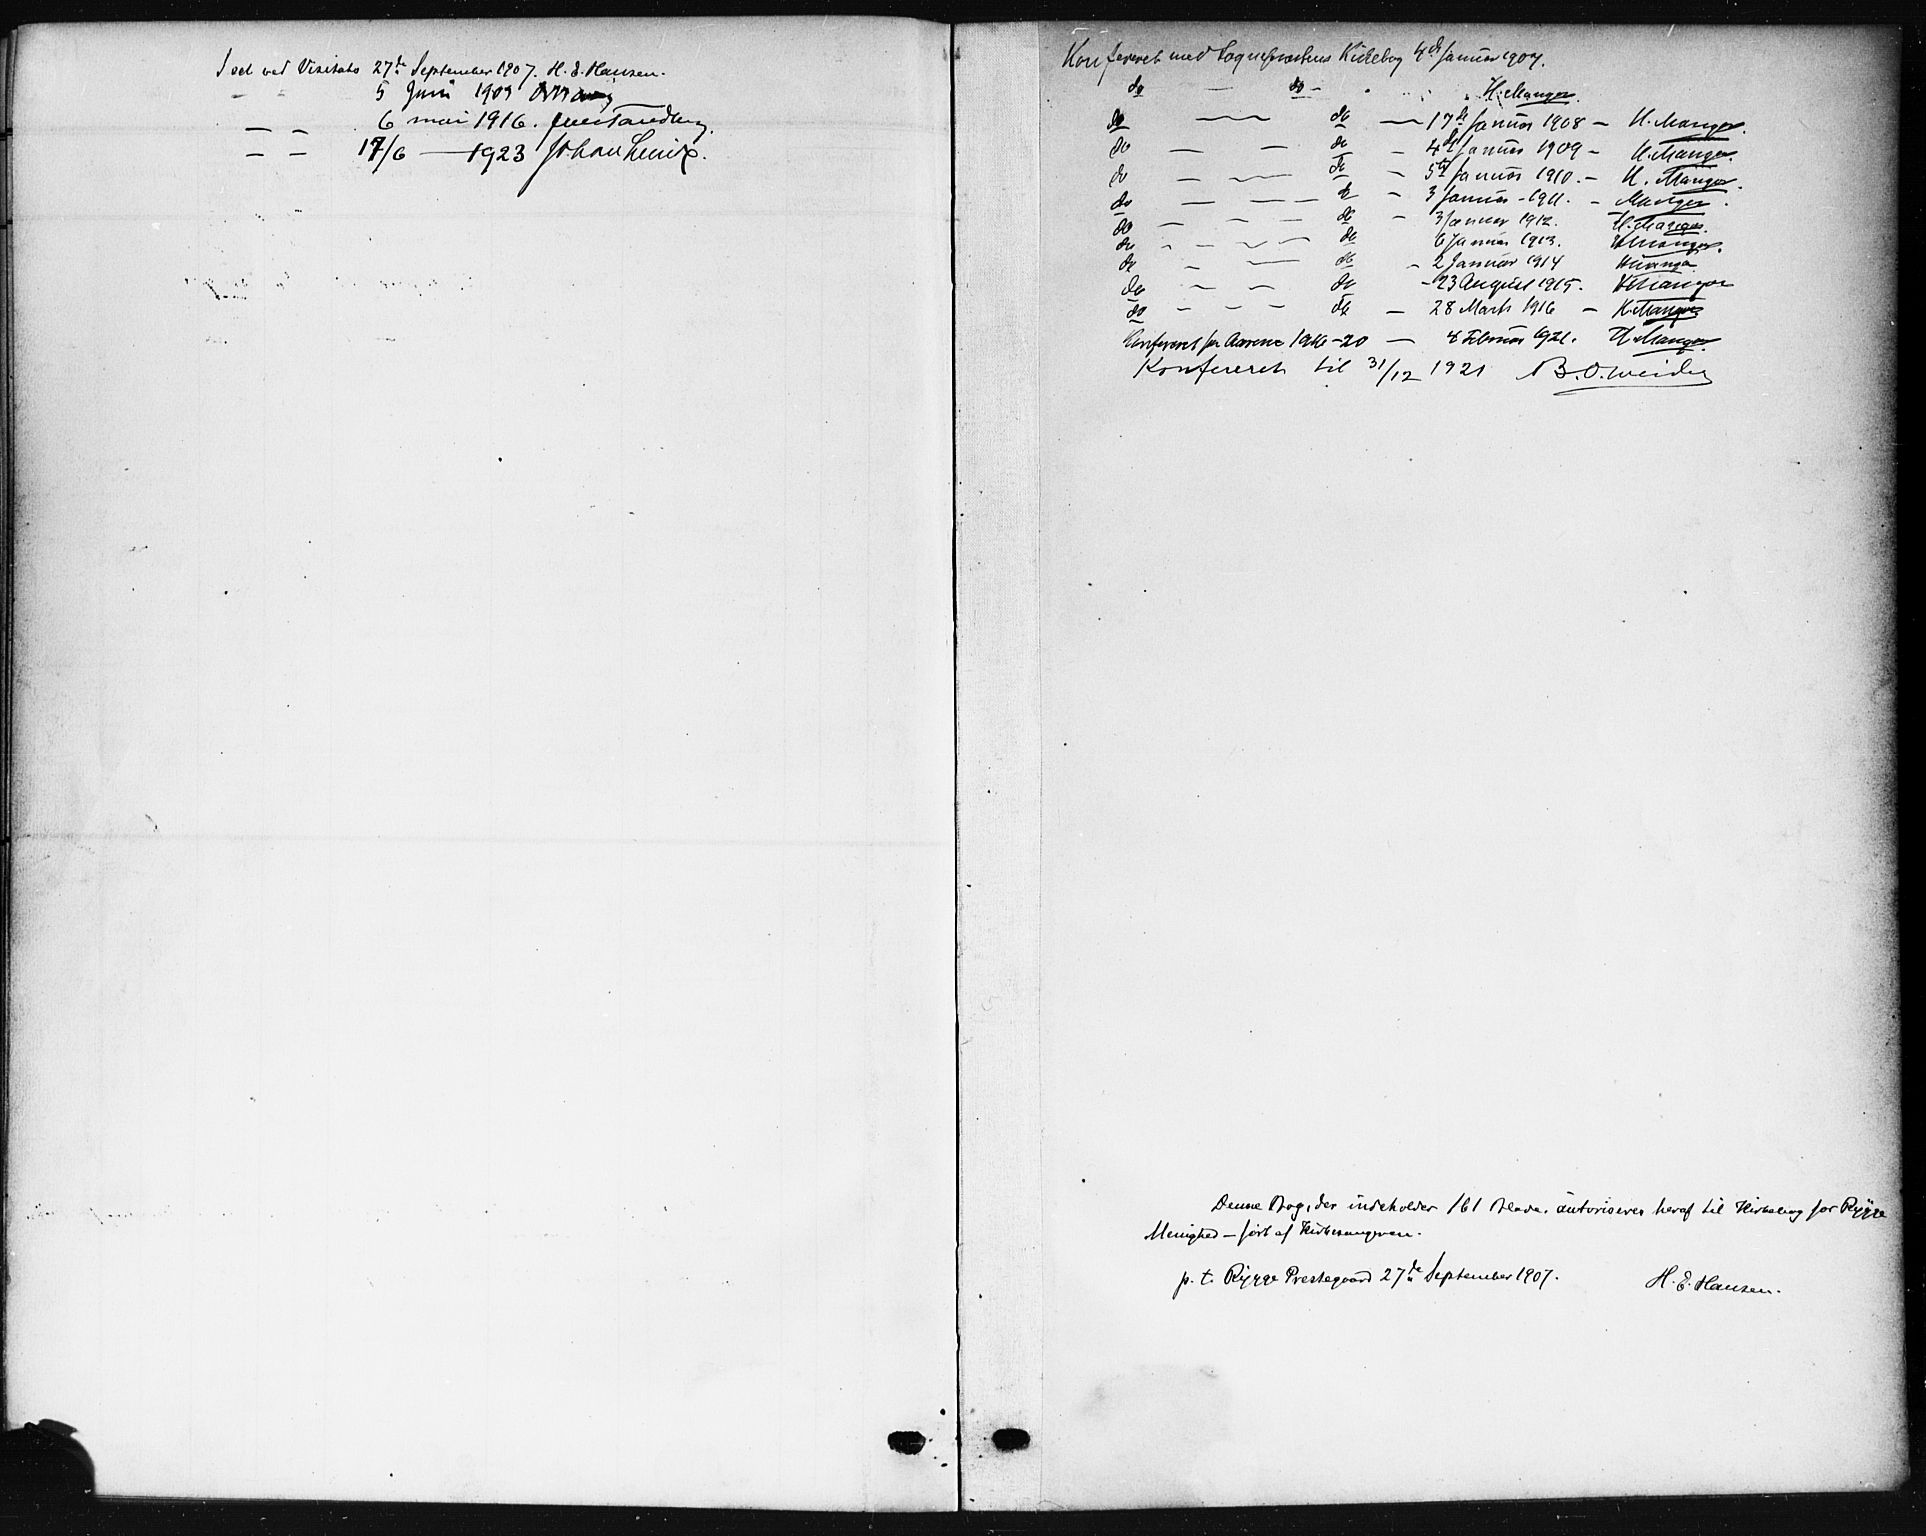 Set ved Visitats 27de September 1907. H. E. Hansen.
- - 5 Juni 1909
— — 6 mai 1916. Jens Tandberg.
— — 17/6 — 1923 Johan Lunde.
Konfereret med Sognepræstens Kirkebog 4de Januar 1907.
do — do - H. Manger.
do — — do — 17de Januar 1908 — H. Manger.
do — — do — 4de Januar 1909 - H. Manger.
do — — do — 5te Januar 1910. — H. Manger.
do — — — do - 3 Januar - 1911. - Manger.
do — - - do - 3 Januar 1912. H. Manger.
do - - - - do 6 Januar 1913. H Manger.
do - — do - 2 Januar 1914 H Manger
do - - do - 23 August 1915. H Manger
do - - - do — 28 Marts 1916 — H. Manger
Konfereret for Aarene 1916-20 — 8 Februar 1921. H. Manger.
Konfereret til 31/12 1921 B. O. Weider
Denne Bog, der indeholder 161 Blade, autoriseres heraf til Kirkebog for Rygge
Menighed — ført af Kirkesangeren.
p. t. Rygge Prestegaard 27de September 1907. H. E. Hansen.